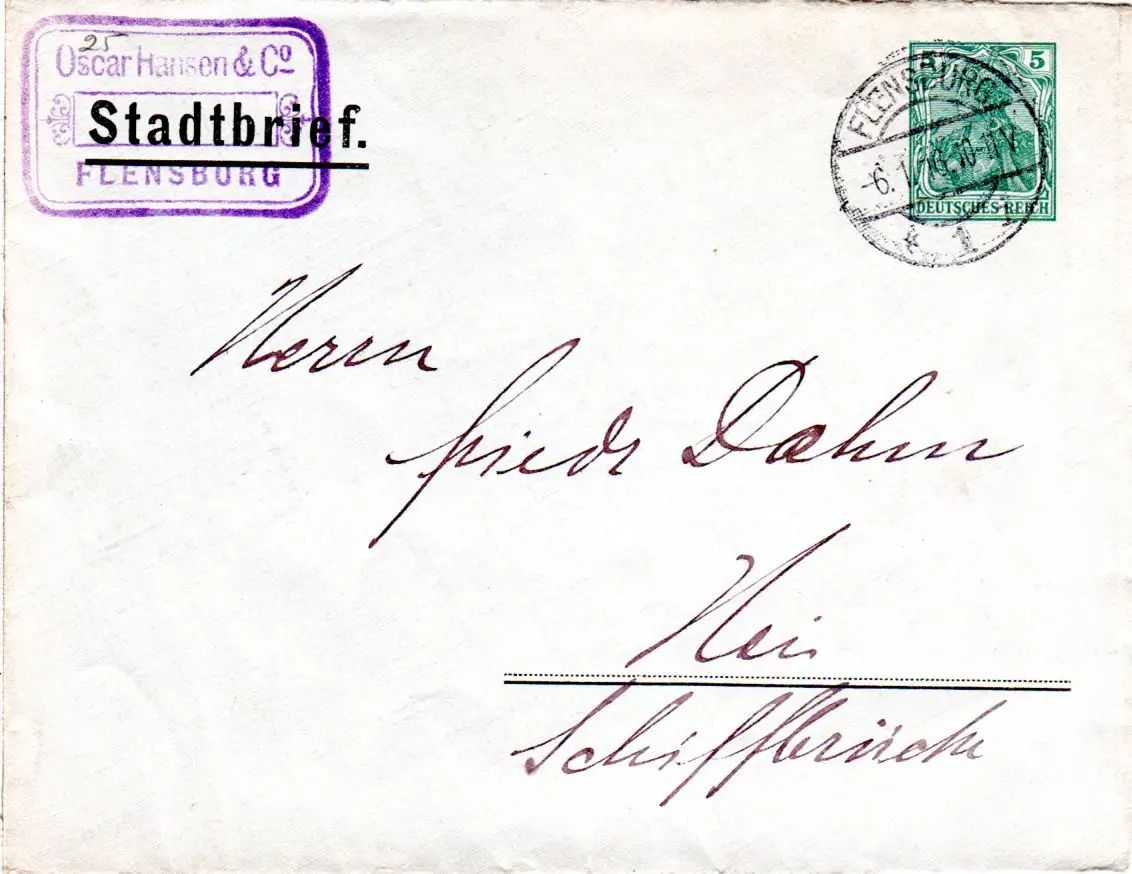 25
Oscar Hansen & Co
Stadtbrief.
FLENSBURG
5
FLENSBURG
10-11V.
DEUTSCHES REICH
* 1
Herrn
Friedr Dahm
Schiffbrücke